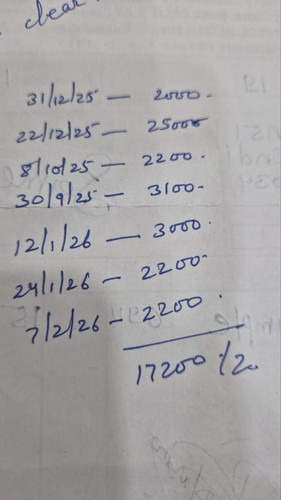 clear
31/12/25 — 2000.
22/12/25 — 25000
8/10/25 — 2200.
30/9/25 — 3100.
12/1/26 — 3000.
24/1/26 — 2200.
7/2/26 — 2200.
17200